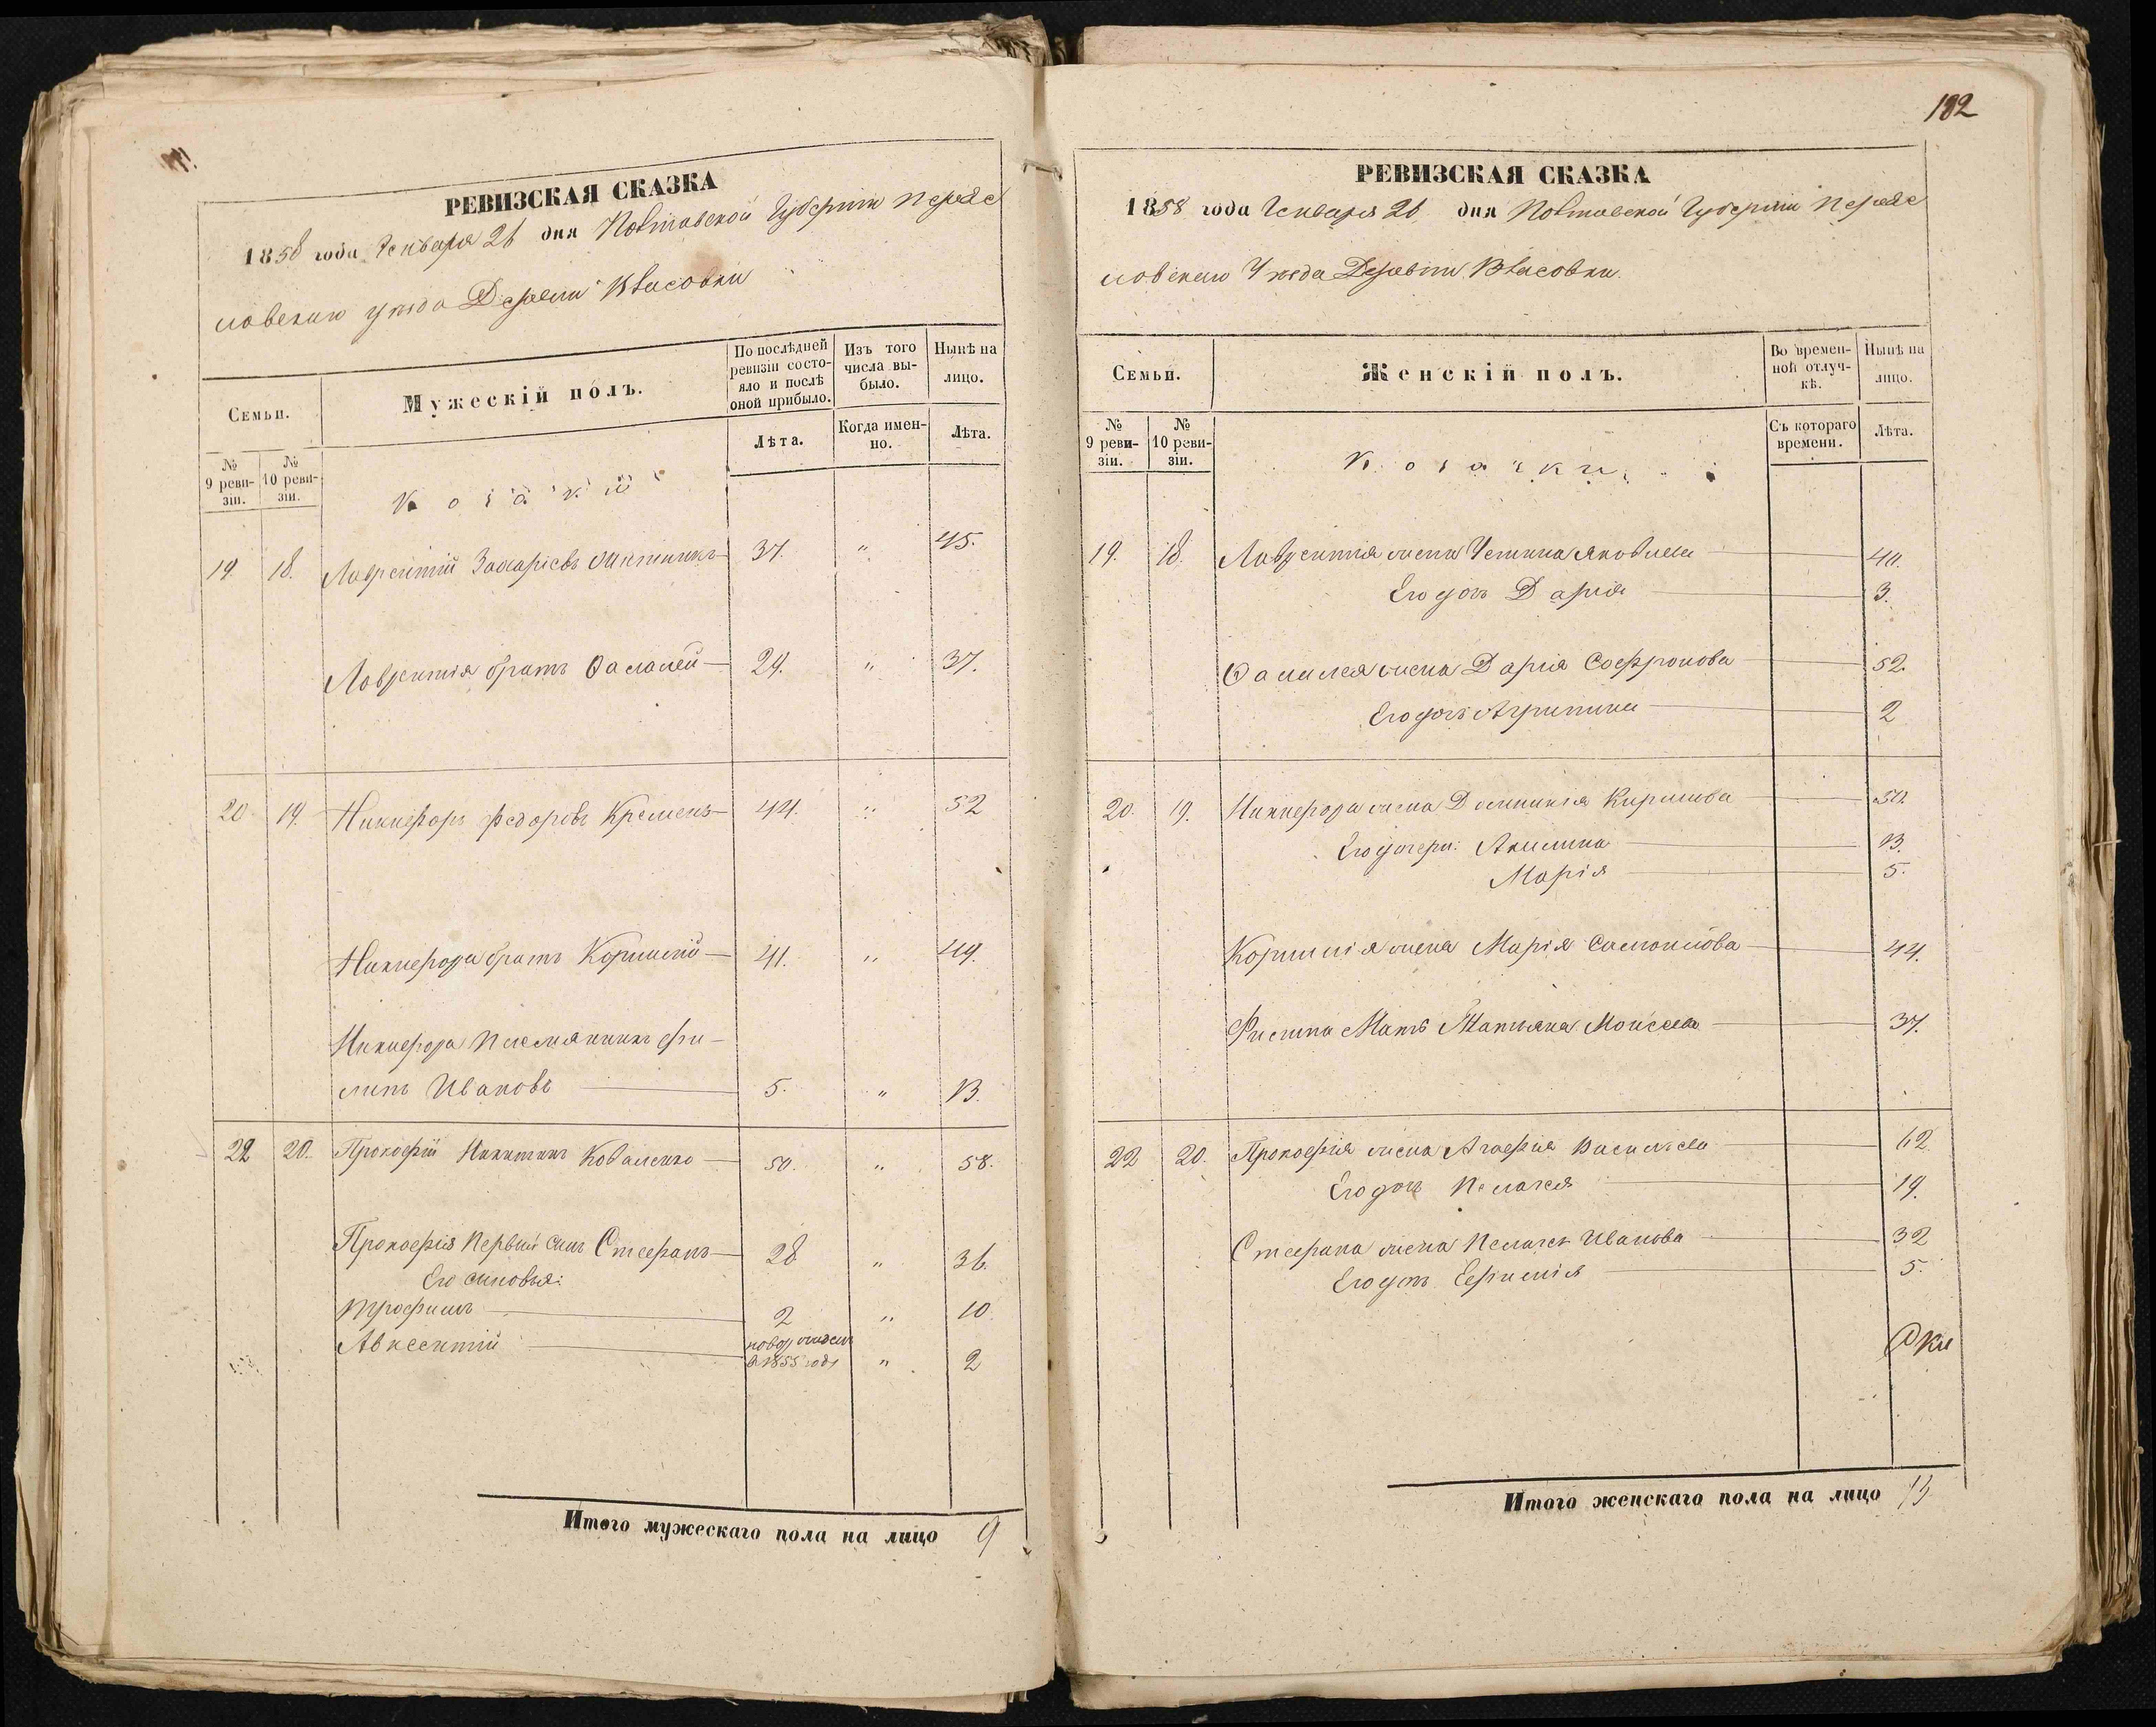 РЕВИЗСКАЯ СКАЗКА
1858 года Генваря 26 дня Полтавской Губерніи Переяс
ловскаго уезда Деревни Власовки
Семьи.
Мужескій полъ.
По послѣдней ревизіи состояло и послѣ оной прибыло.
Изъ того числа выбыло.
Нынѣ на лицо.
Лѣта.
Когда именно.
Лѣта.
№ 9 ревизіи.
№ 10 ревизіи.
Козаки
19. 18. Лаврентій Захаріевъ 37. " 45.
Лаврентія братъ Фалалей 29. " 37.
20 19. Никифоръ Федоровъ Кремень 44. " 52
Никифора братъ Корнилій 41. " 49.
Никифора племянникъ Фи-
липъ Ивановъ 5. " 13.
22 20. Прокофій Никитинъ Коваленко 50. " 58.
Прокофія первый сынъ Стефанъ 28 " 36.
Его сыновья:
Трофимъ 2 " 10
Авксентій новорожден
в 1855 году " 2
Итого мужескаго пола на лицо 9
182
РЕВИЗСКАЯ СКАЗКА
1858 года Генваря 26 дня Полтавской Губерніи Переяс
ловскаго Уезда Деревни Власовки.
Семьи.
Женскій полъ.
Во временной отлучкѣ.
Нынѣ на лицо.
Съ котораго времени.
Лѣта.
№ 9 ревизіи.
№ 10 ревизіи.
Козачки
19. 18. Лаврентія жена Яковлева 40.
Его дочь Дарія 3.
Фалалея жена Дарія Софронова 32.
Его дочь Агрипина 2
20. 19. Никифора жена Домникія Кирилова 50.
Его дочери: Акилина 13.
Марія 5.
Корнилія жена Марія Самойлова 44.
Филипа Мать Татіяна Моисеева 37.
22 20. Прокофія жена Агафія Василіева 62
Его дочь Пелагея 19.
Стефана жена Пелагея Иванова 32
Его дочь Ефимія 5.
Итого женскаго пола на лицо 13